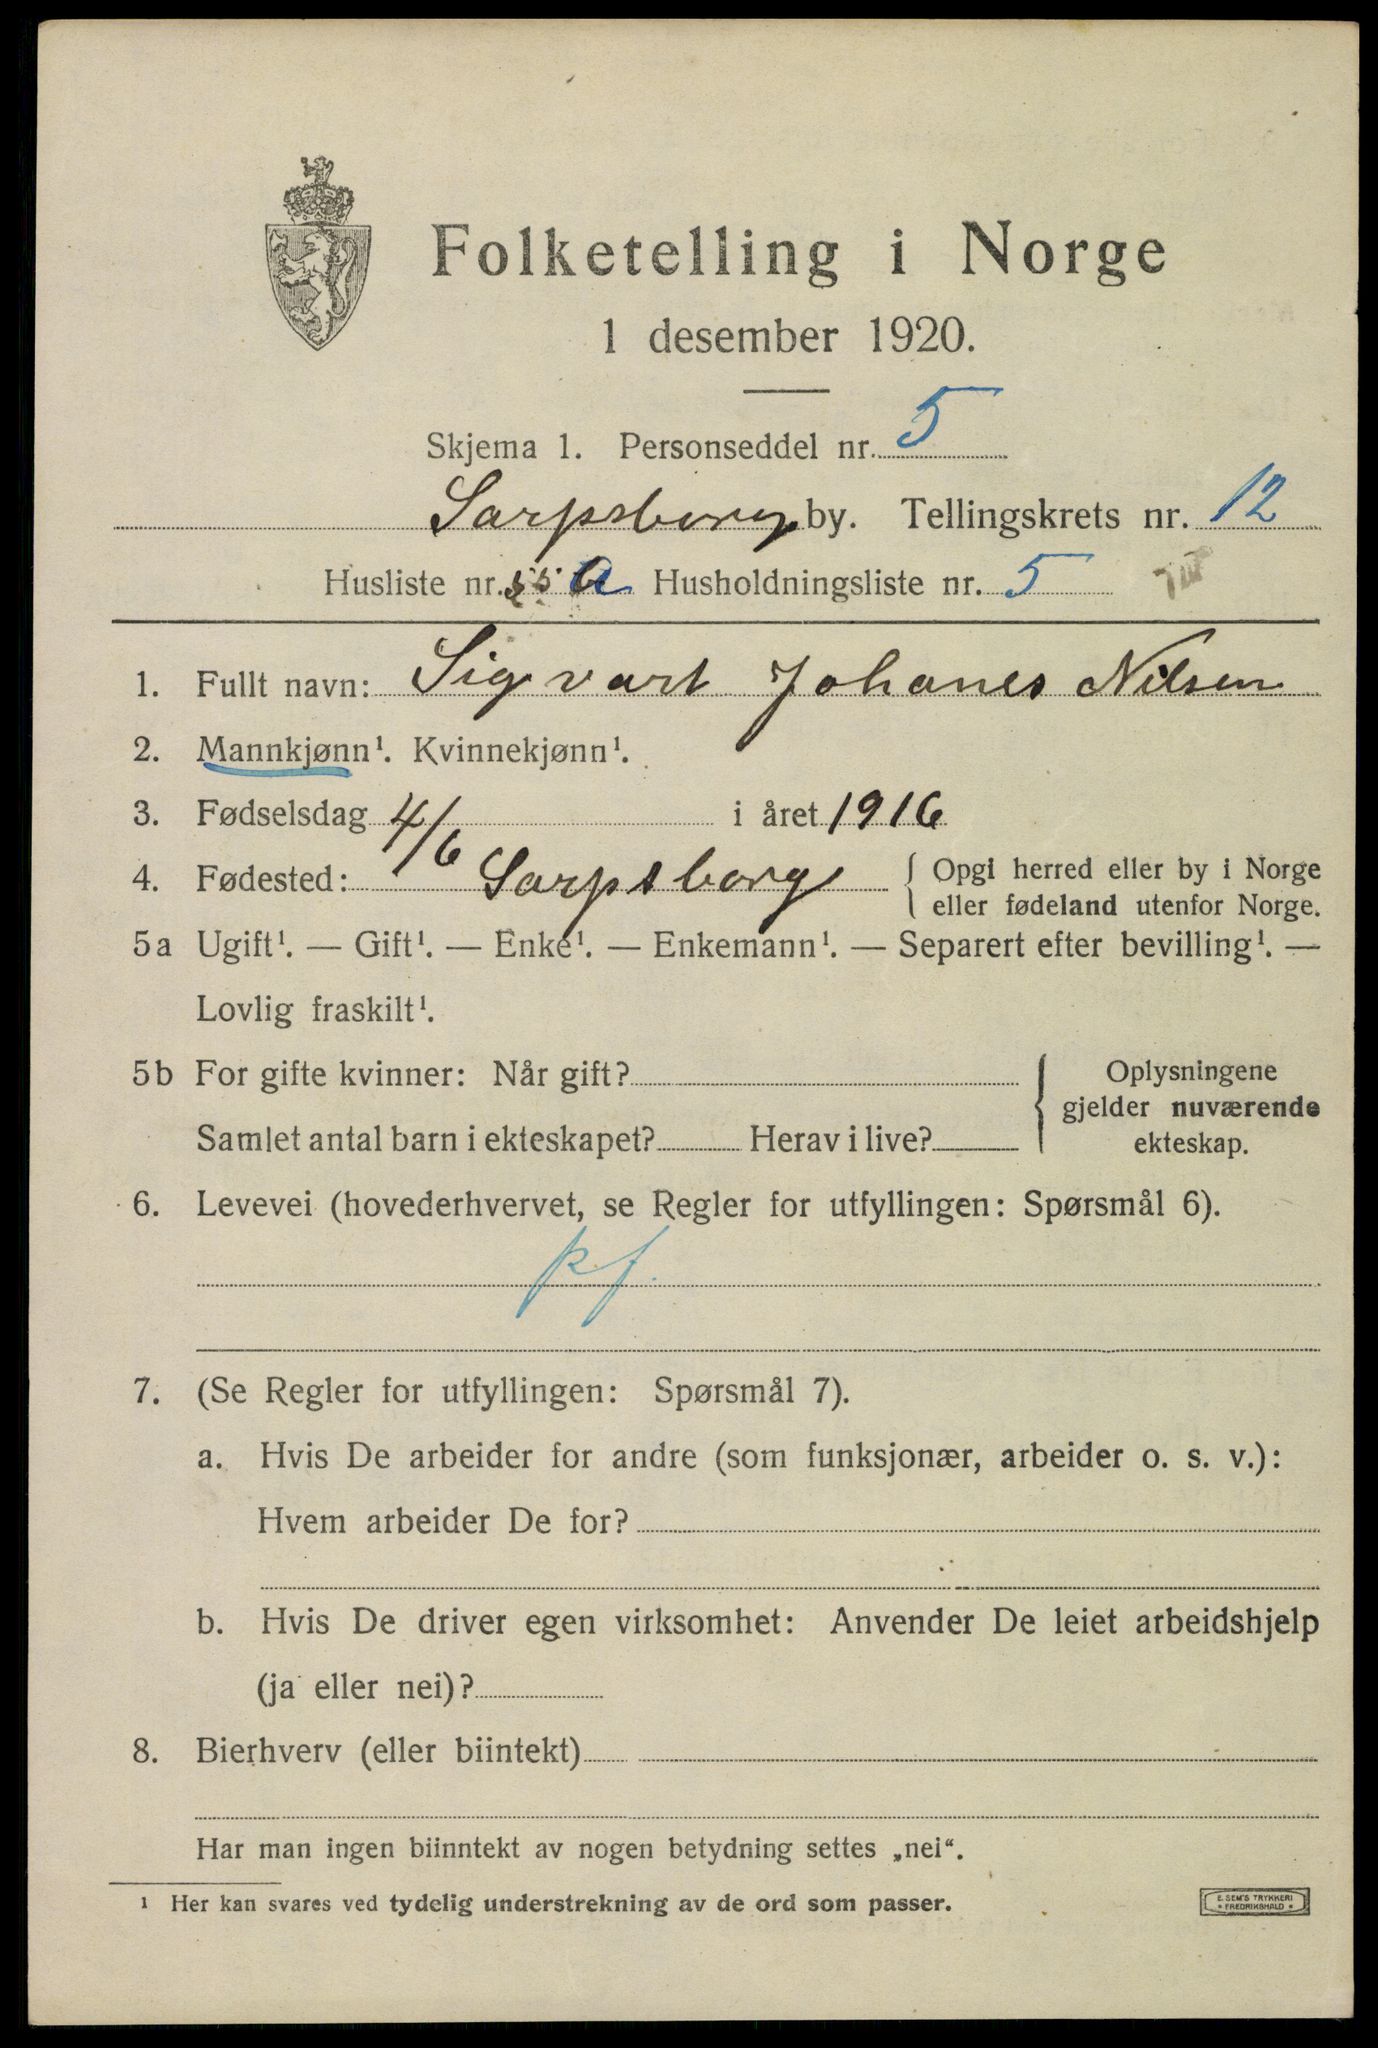 Folketelling i Norge
1 desember 1920.
Skjema 1. Personseddel nr. 5
Sarpsborg by. Tellingskrets nr. 12
Husliste nr. 55 a Husholdningsliste nr. 5
1. Fullt navn: Sigvart Johanes Nilsen
2. Mannkjønn¹. Kvinnekjønn¹.
3. Fødselsdag 4/6 i året 1916
4. Fødested: Sarpsborg { Opgi herred eller by i Norge
eller fødeland utenfor Norge.
5a Ugift¹. — Gift¹. — Enke¹. — Enkemann¹. — Separert efter bevilling¹. —
Lovlig fraskilt¹.
5b For gifte kvinner: Når gift?
Samlet antal barn i ekteskapet? Herav i live?
Oplysningene
gjelder nuværende
ekteskap.
6. Levevei (hovederhvervet, se Regler for utfyllingen: Spørsmål 6).
pf.
7. (Se Regler for utfyllingen: Spørsmål 7).
a. Hvis De arbeider for andre (som funksjonær, arbeider o. s. v.):
Hvem arbeider De for?
b. Hvis De driver egen virksomhet: Anvender De leiet arbeidshjelp
(ja eller nei)?
8. Bierhverv (eller biintekt)
Har man ingen biinntekt av nogen betydning settes „nei“.
¹ Her kan svares ved tydelig understrekning av de ord som passer.
E. SEM'S TRYKKERI
* FREDRIKSHALD *